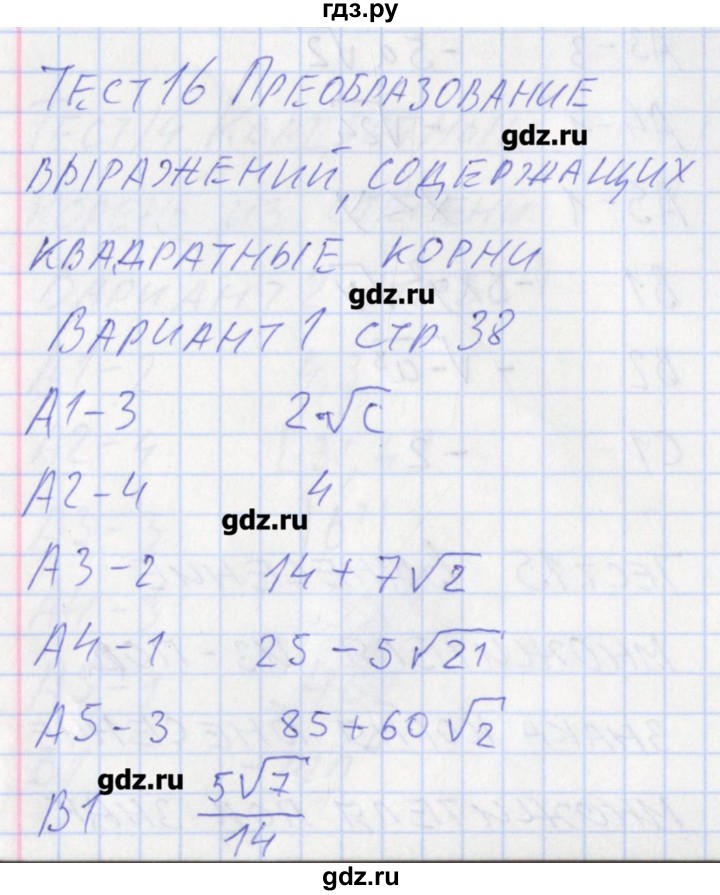 гдз.ру
Тест 16 Преобразование
gdz.ru
выражений, содержащих
квадратные корни
gdz.ru
Вариант 1 стр 38
А1-3 2√c
А2-4 4
gdz.ru
А3-2 14+7√2
А4-1 25-5√21
А5-3 85+60√2
gdz.ru
В1 5√7/14
gdz.ru